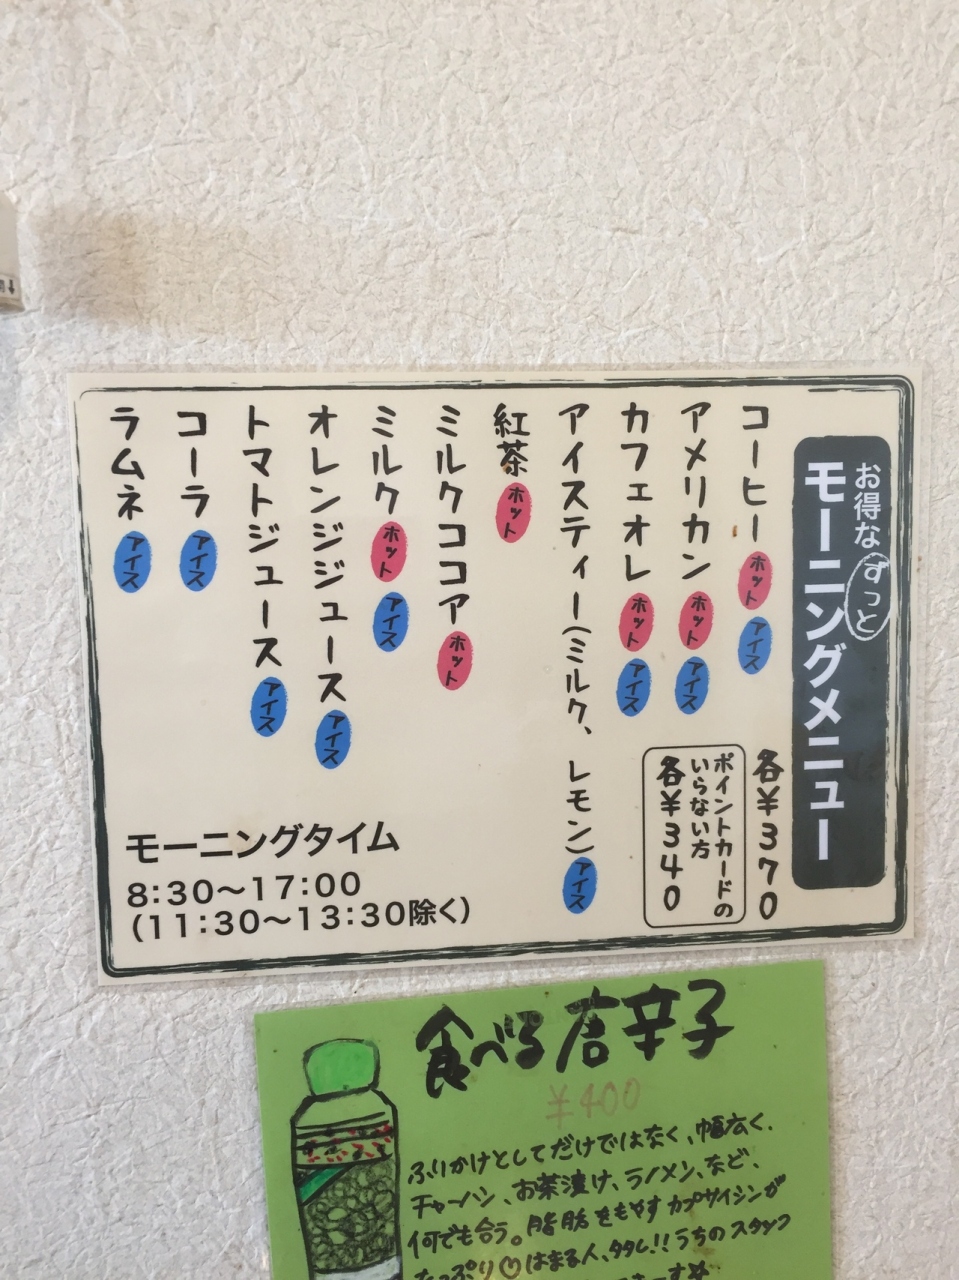 お得なずっと
モーニングメニュー
各¥370
コーヒー ホット アイス
アメリカン ホット アイス
ポイントカードの
いらない方
各¥340
カフェオレ ホット アイス
アイスティー(ミルク、レモン) アイス
紅茶 ホット
ミルクココア ホット
ミルク ホット アイス
オレンジジュース アイス
トマトジュース アイス
コーラ アイス
ラムネ アイス
モーニングタイム
8:30〜17:00
(11:30〜13:30除く)
食べる唐辛子
¥400
ふりかけとしてだけではなく、幅広く、
チャーハン、お茶漬け、ラーメン、など、
何でも合う。脂肪をもやすカプサイシンが
たっぷり♡はまる人、多し!!うちのスタッフ